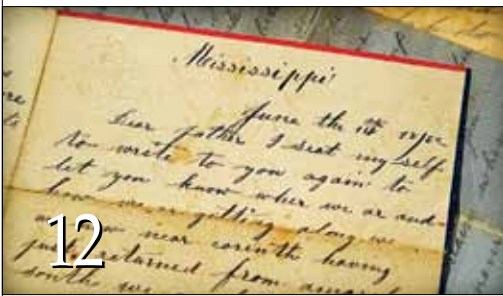 Mississippi
June the
Dear father I seat my self
to write to you again to
let you know wher we ar and
how we ar getting along we
ar now near corinth having
just returned from
south we
12